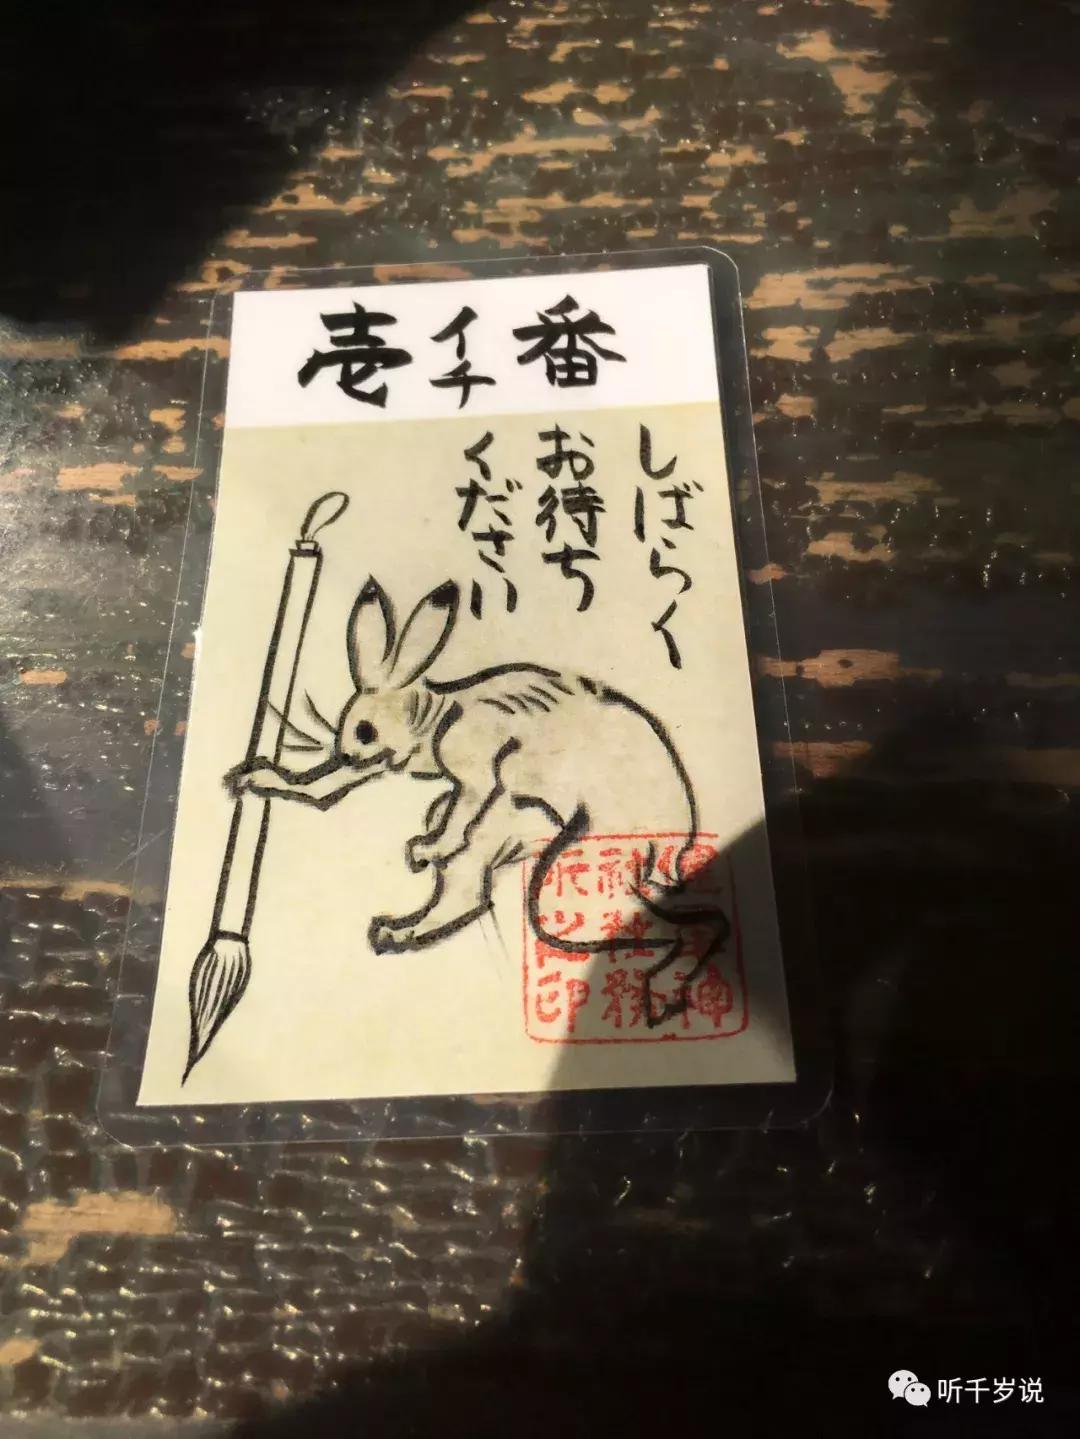 壱イチ番
しばらく
お待ち
ください
神
社社務
之印
听千岁说